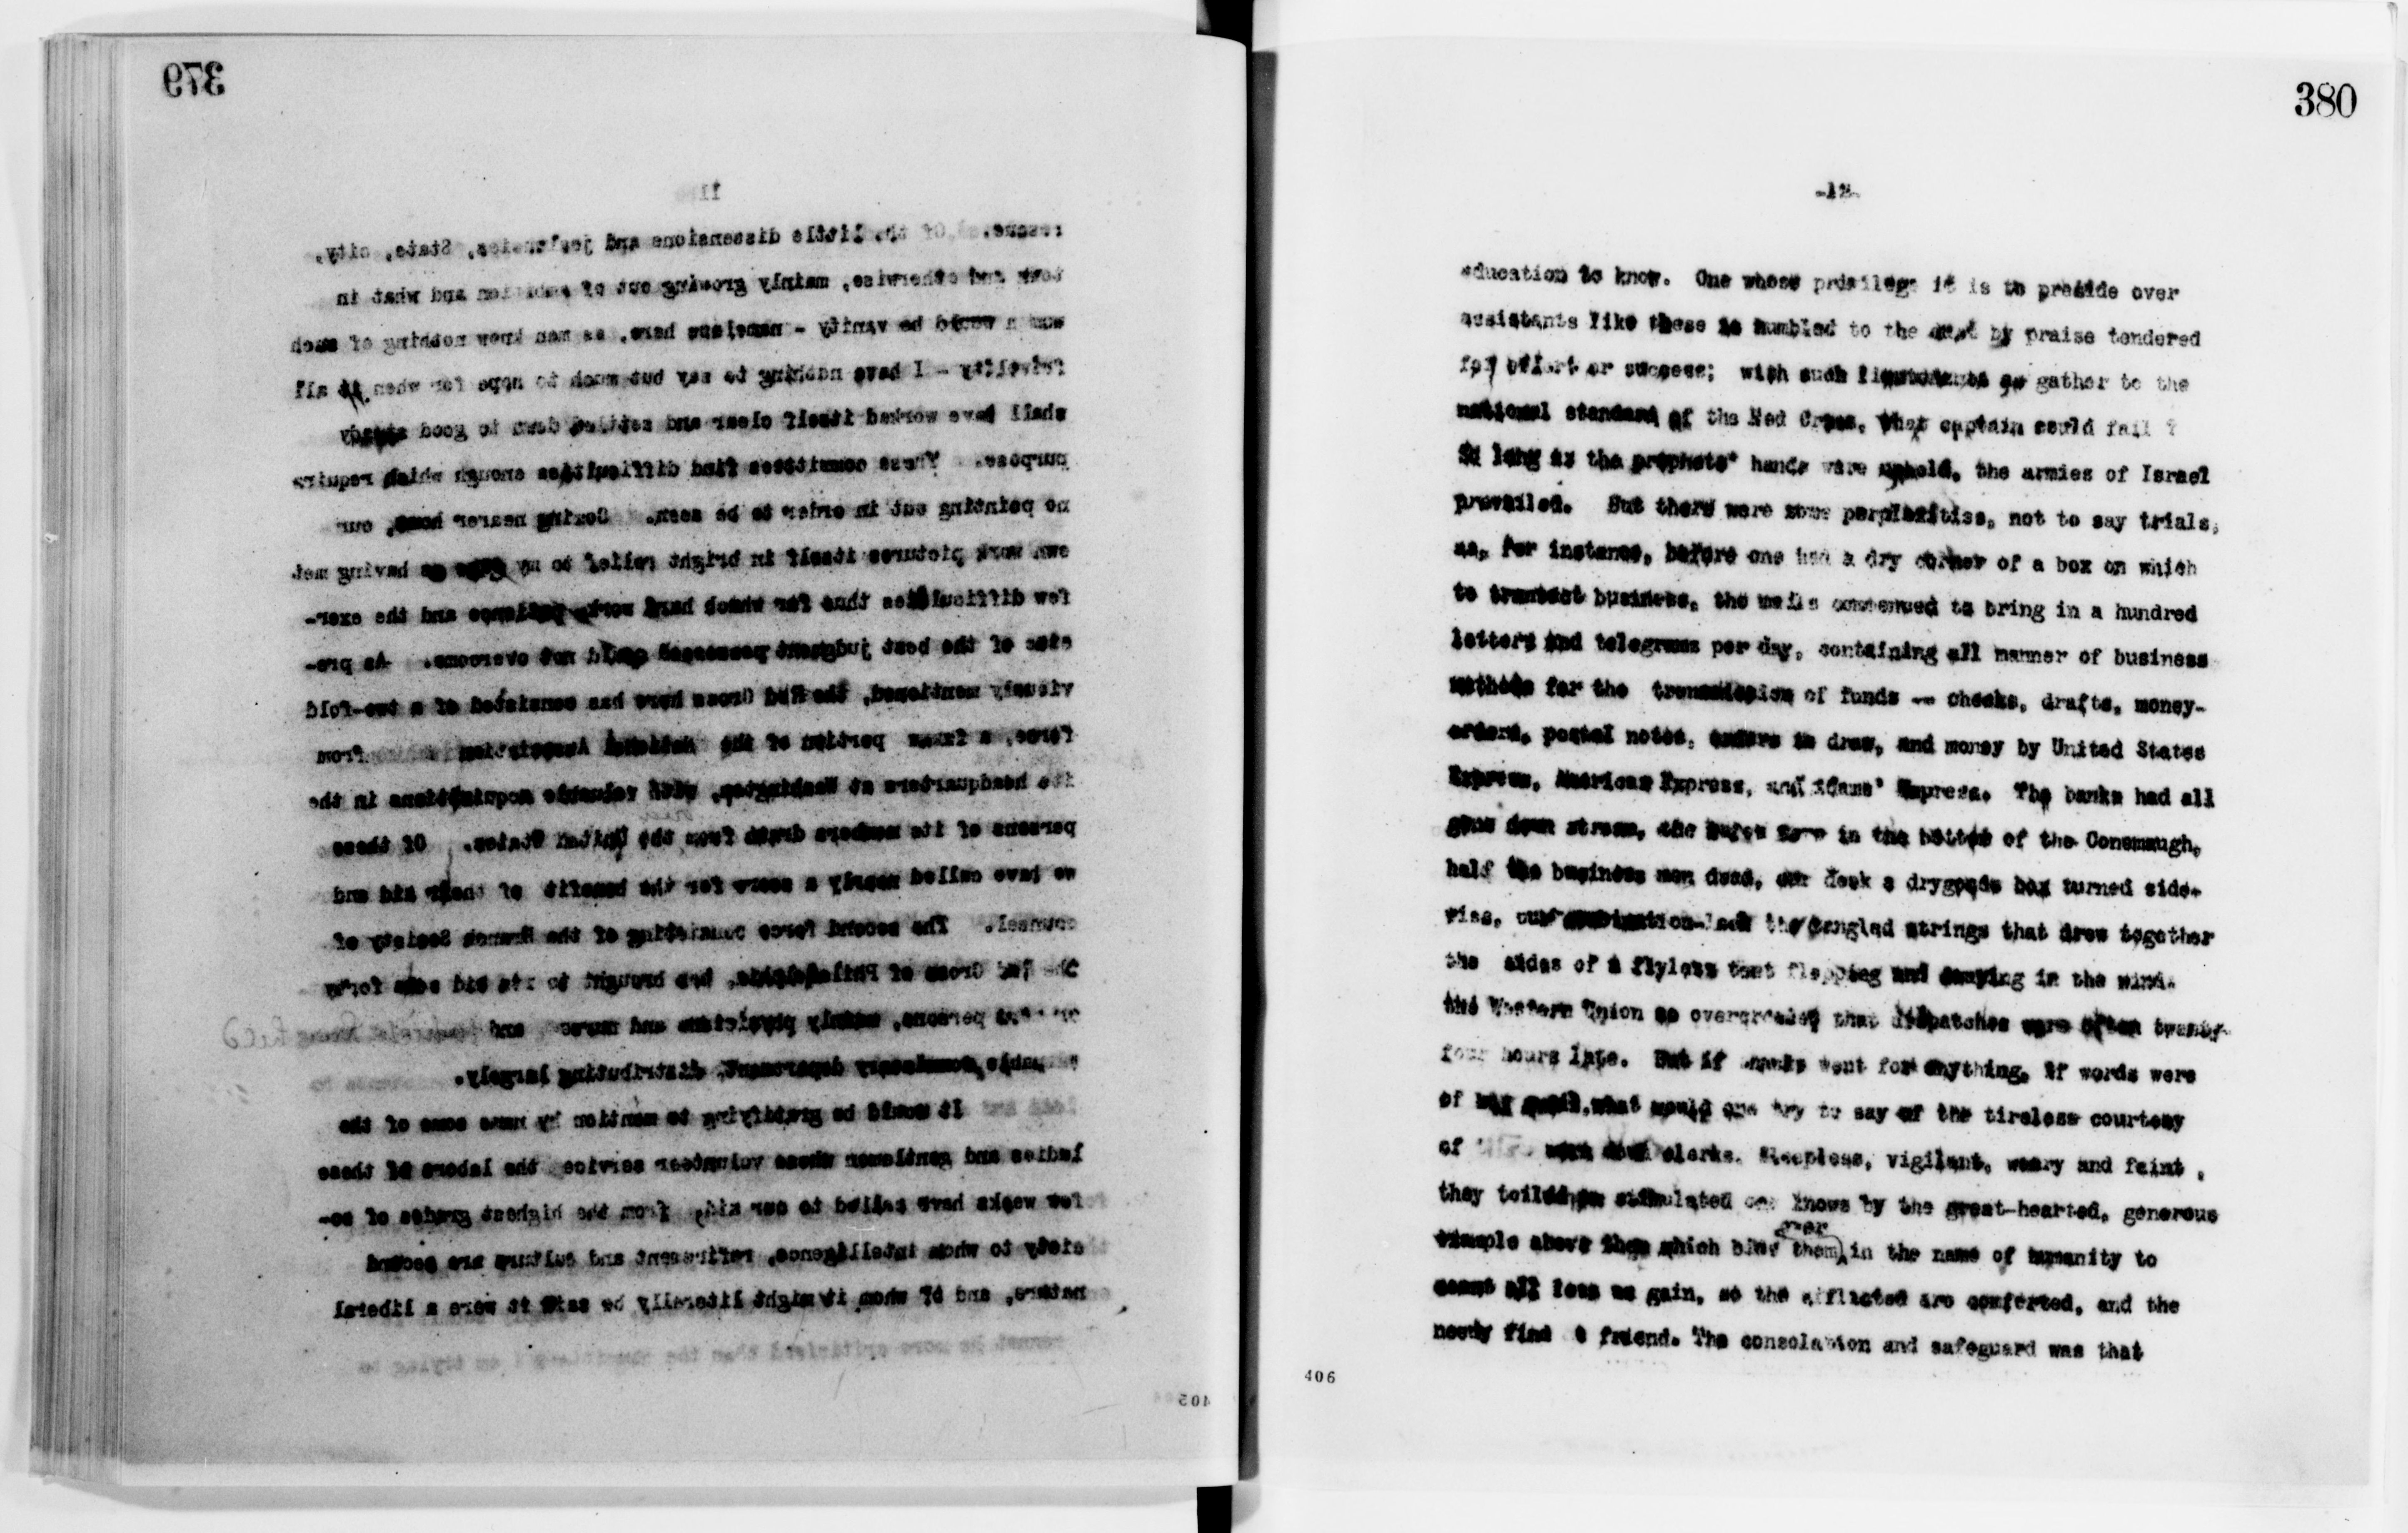 379
11
rescue. Of the little dissensions and jealousies, State, city,
town and otherwise, mainly growing out of ambition and what in
woman would be vanity - nameless here, as men know nothing of such
frivolity - I have nothing to say but much to hope for when it all
shall have worked itself clear and settled down to good steady
purpose. These committees find difficulties enough which require
no pointing out in order to be seen. Coming nearer home, our
own work pictures itself in bright relief to my as having met
few difficulties thus far which hard work, patience and the exer-
cise of the best judgment possessed could not overcome. As pre-
viously mentioned, the Red Cross here has consisted of a two-fold
force, a portion of the National Association from
its headquarters at Washington, with valuable acquisitions in the
persons of its members drawn from the United States. Of these
we have called nearly a score for the benefit of their aid and
counsel. The second force consisting of the Branch Society of
the Red Cross of Philadelphia, has brought to its aid some forty
or persons, mainly physicians and nurses and
commissary department, distributing largely.
It would be gratifying to mention by name some of the
ladies and gentlemen whose volunteer service the labors of these
few weeks have called to our aid, from the highest grades of so-
ciety to whom intelligence, refinement and culture are second
nature, and of whom it might literally be said it were a liberal
405
380
-12-
education to know. One whose privilege it is to preside over
assistants like these is humbled to the dust by praise tendered
for effort or success; with such lieutenants as gather to the
national standard of the Red Cross, what captain could fail ?
So long as the prophets' hands were upheld, the armies of Israel
prevailed. But there were some perplexities, not to say trials,
as, for instance, before one had a dry corner of a box on which
to transact business, the mails commenced to bring in a hundred
letters and telegrams per day, containing all manner of business
methods for the transmission of funds -- checks, drafts, money-
orders, postal notes, orders to draw, and money by United States
Express, American Express, and Adams' Express. The banks had all
gone down stream, the safes were in the bottom of the Conemaugh,
half the business men dead, our desk a drygoods box turned side-
wise, our combination-lock the tangled strings that drew together
the sides of a flyless tent flapping and swaying in the wind.
the Western Union so overcrowded that dispatches were often twenty-
four hours late. But if thanks went for anything, if words were
of any avail, what would one try to say of the tireless courtesy
of clerks. Sleepless, vigilant, weary and faint ,
they toiled on stimulated one knows by the great-hearted, generous
example above them which bids them ever in the name of humanity to
count all loss as gain, so the afflicted are comforted, and the
needy find a friend. The consolation and safeguard was that
406